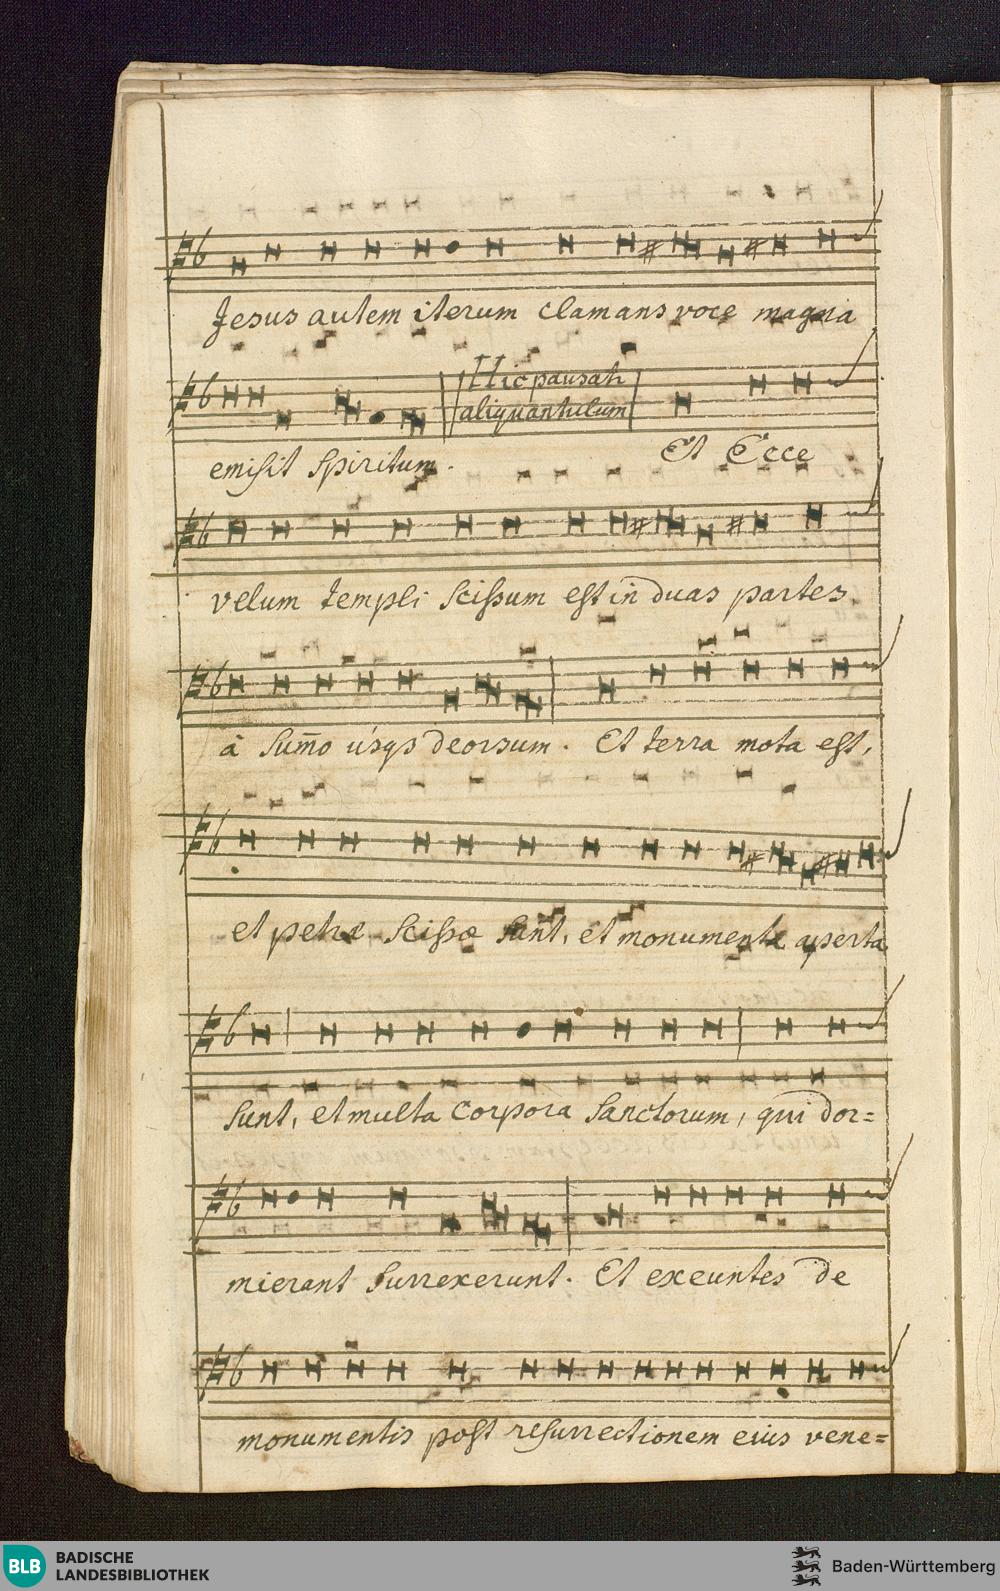 Jesus autem iterum clamans voce magna
Hic pausatr
aliquantulum
emisit Spiritum. Et Ecce
velum templi scissum est in duas partes
à sum̄o usqs deorsum. Et terra mota est,
et petræ scissæ sunt, et monumenta aperta
sunt, et multa corpora Sanctorum, qui dor=
mierant surrexerunt. Et exeuntes de
monumentis post resurrectionem eius vene=
BLB BADISCHE
LANDESBIBLIOTHEK
Baden-Württemberg